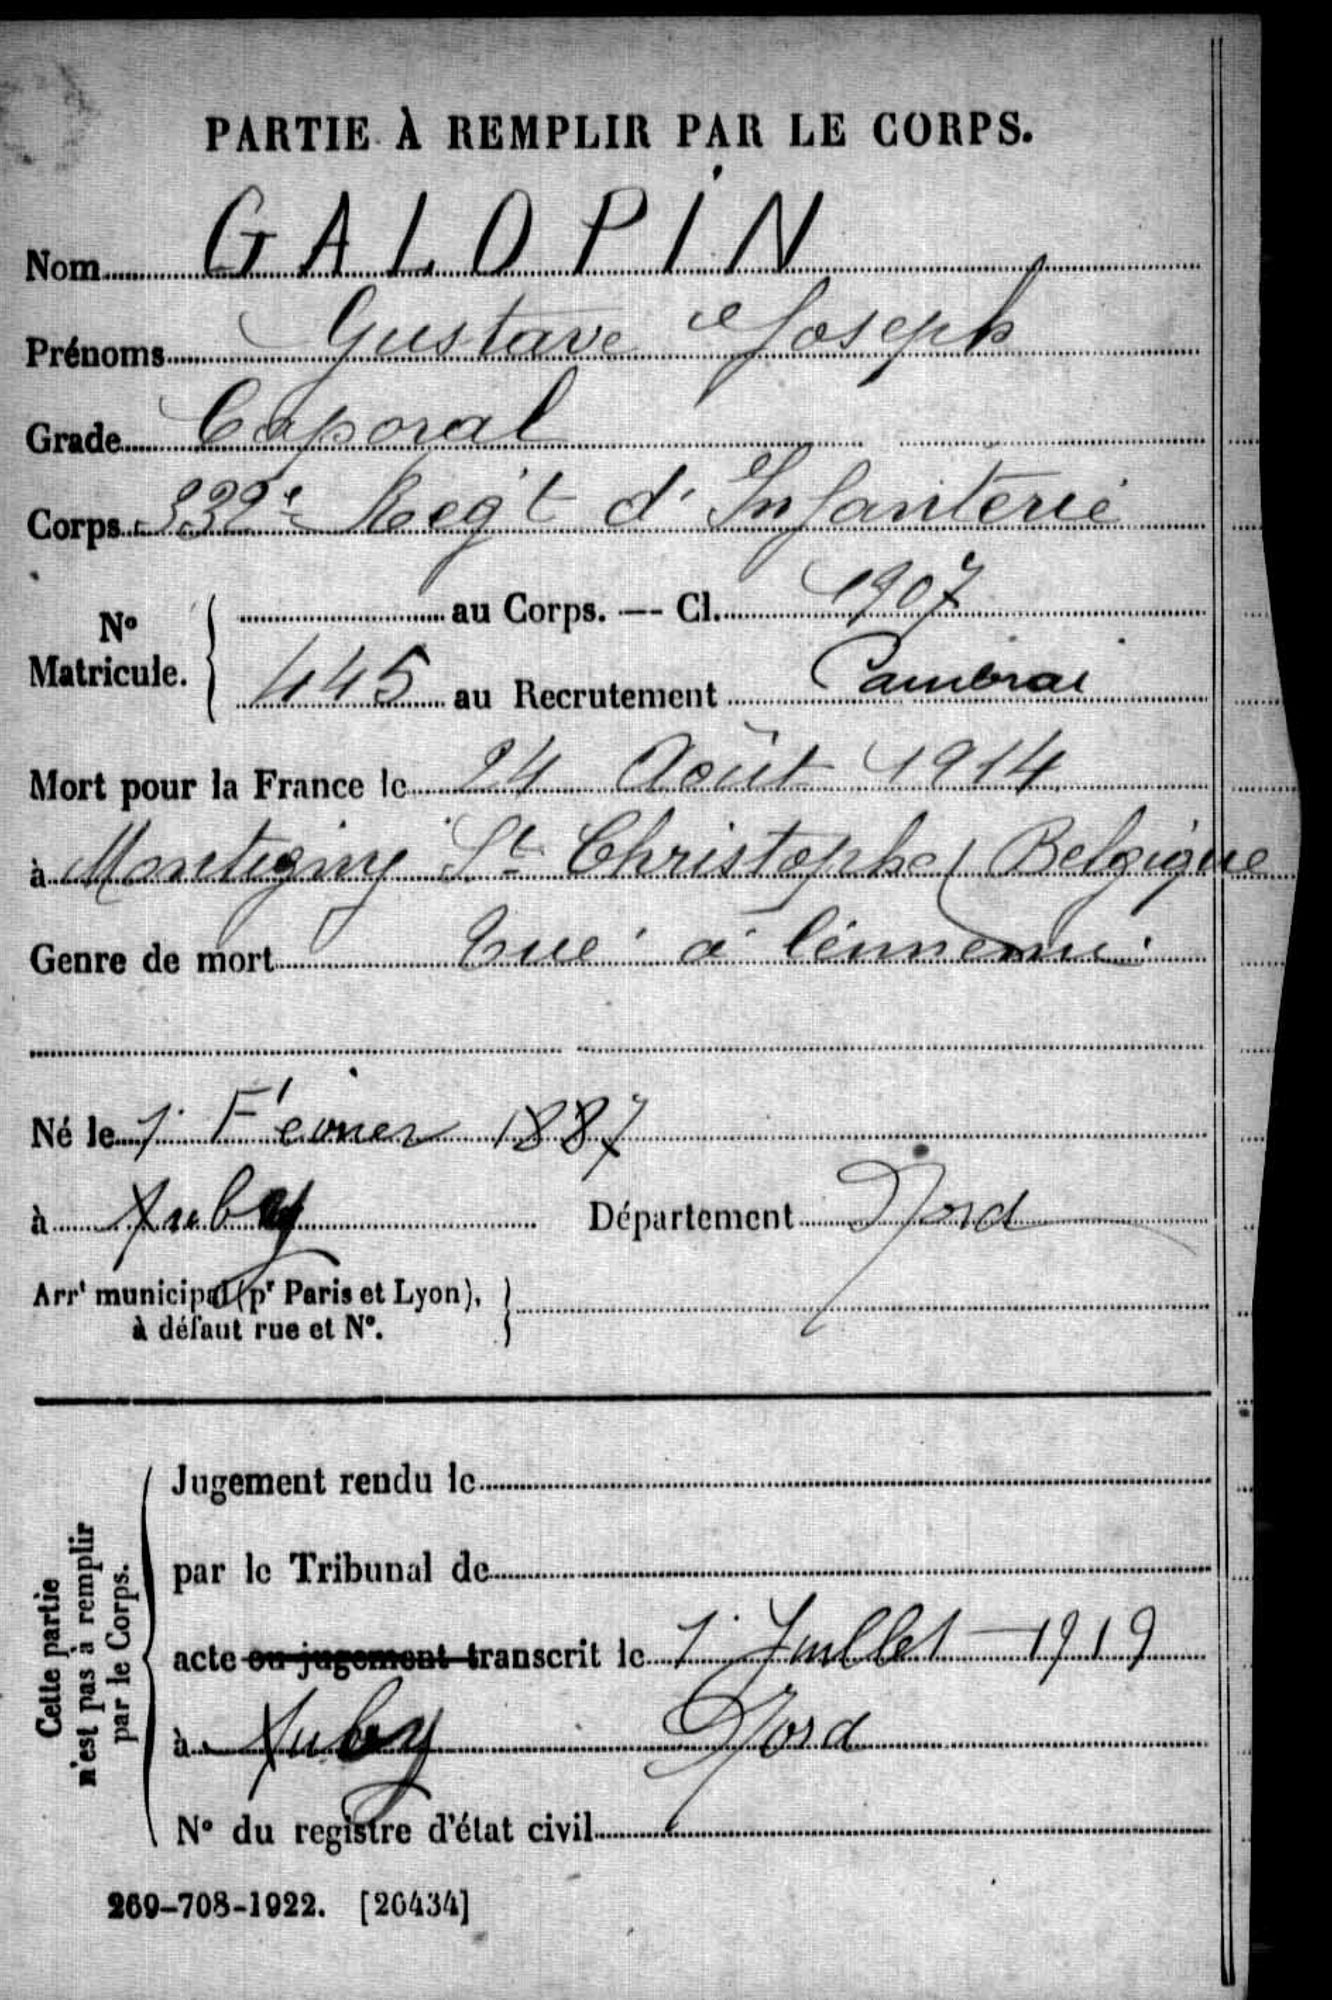 PARTIE À REMPLIR PAR LE CORPS.
Nom GALOPIN
Prénoms Gustave Joseph
Grade Caporal
Corps 332e Reg't d'Infanterie
No Matricule. au Corps. — Cl. 1907
445 au Recrutement Cambrai
Mort pour la France le 24 Août 1914
à Montigny St Christophe (Belgique
Genre de mort tué à l'ennemi
Né le 1 Février 1887
à Auby Département Nord
Arrt municipal (pr Paris et Lyon),
à défaut rue et No.
Cette partie
n'est pas à remplir
par le Corps.
Jugement rendu le
par le Tribunal de
acte ou jugement transcrit le 1 Juillet 1919
à Auby Nord
No du registre d'état civil
269-708-1922. [26434]